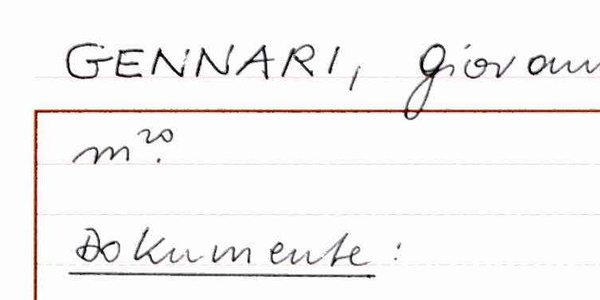 GENNARI, Giovann
m²⁰.
Dokumente: